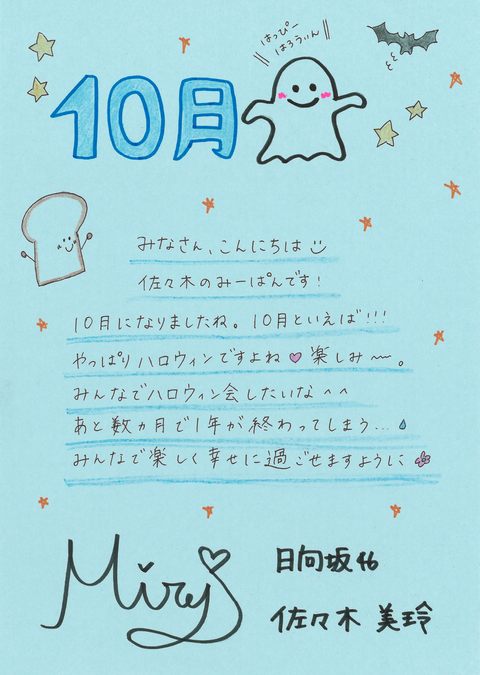 はっぴー
はろうぃん
10月
みなさん、こんにちは
佐々木のみーぱんです!
10月になりましたね。10月といえば!!!
やっぱりハロウィンですよね♥楽しみ〜。
みんなでハロウィン会したいな^^
あと数ヵ月で1年が終わってしまう...
みんなで楽しく幸せに過ごせますように
Mirei
日向坂46
佐々木 美玲